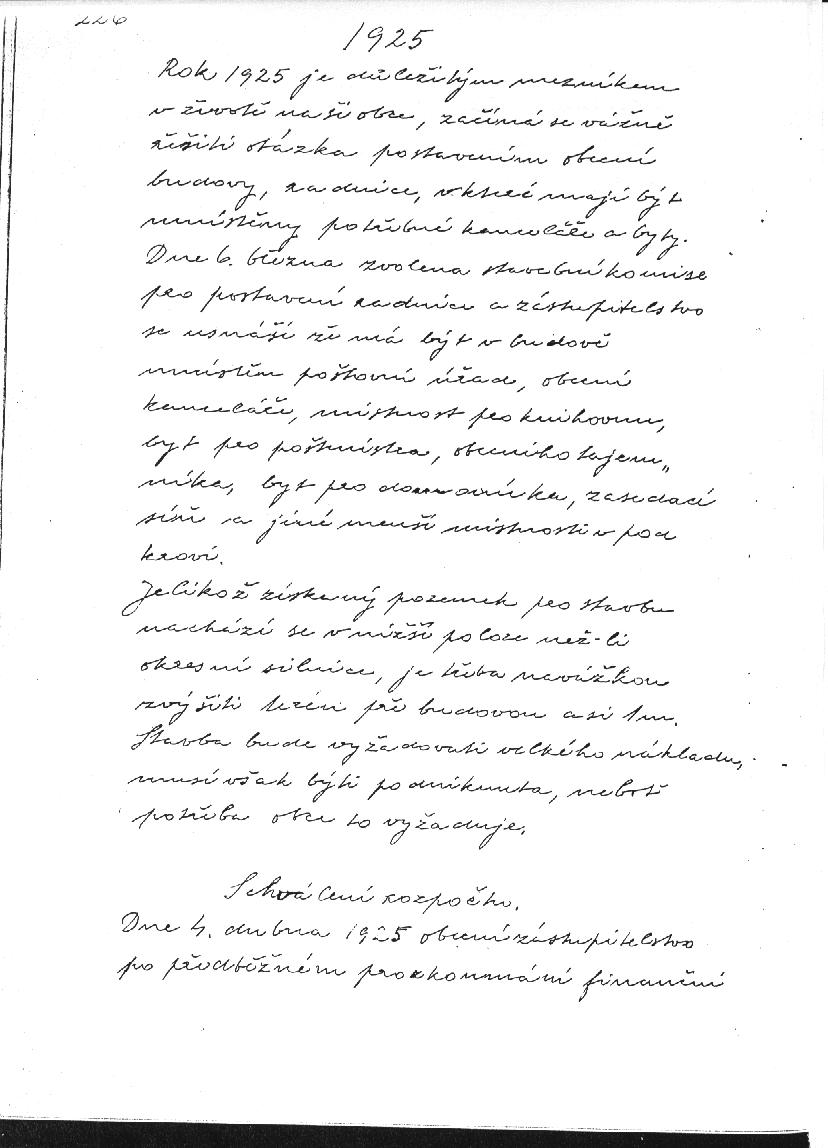 226
1925
Rok 1925 je důležitým mezníkem
v životě naší obce, začíná se vážně
řešiti otázka postavením obecní
budovy, radnice, v které mají být
umístěny potřebné kanceláře a byty.
Dne 6. března zvolena stavební komise
pro postavení radnice a zástupitelstvo
se usnáší že má být v budově
umístěn poštovní úřad, obecní
kanceláře, místnost pro knihovnu,
byt pro poštmistra, obecního tajem„
níka, byt pro domovníka, zasedací
síň a jiné menší místnosti v pod
kroví.
Jelikož získaný pozemek pro stavbu
nachází se v nižší poloze než-li
okresní silnice, je třeba navážkou
zvýšiti terén pře budovou asi 1 m.
Stavba bude vyžadovati velkého nákladu,
musí však býti podniknuta, neboť
potřeba obce to vyžaduje.
Schválení rozpočtu.
Dne 4. dubna 1925 obecní zástupitelstvo
po předběžném prozkoumání finanční